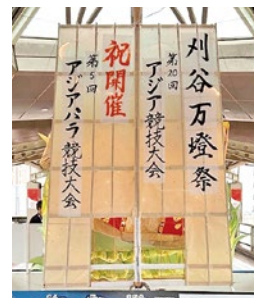 刈谷万燈祭
第20回
アジア競技大会
祝開催
第5回
アジアパラ競技大会